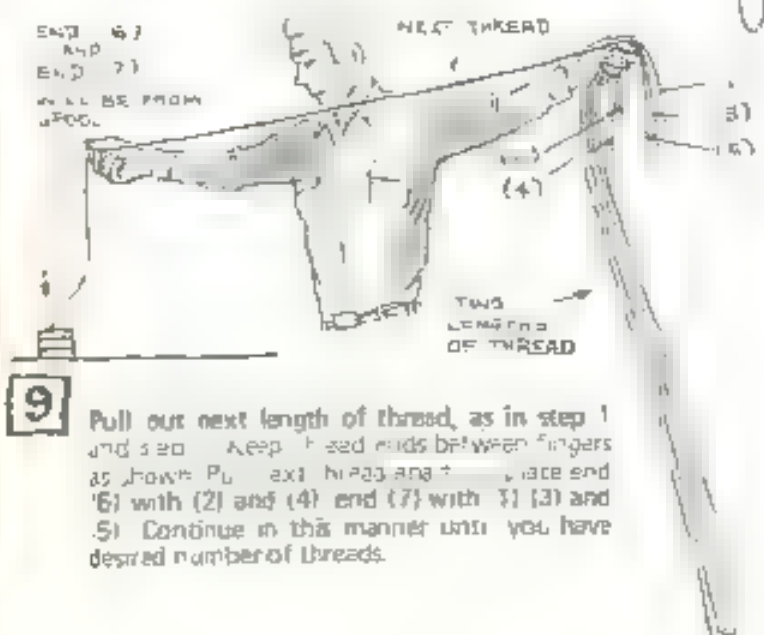 END 6)
AND
END 7)
WILL BE FROM
SPOOL
NEXT THREAD
3)
(5)
(4)
TWO
LENGTHS
OF THREAD
9
Pull out next length of thread, as in step 1
and Keep ends between fingers
as shown end
(6) with (2) and (4) end (7) with 1) (3) and
5) Continue in this manner until you have
desired number of threads.